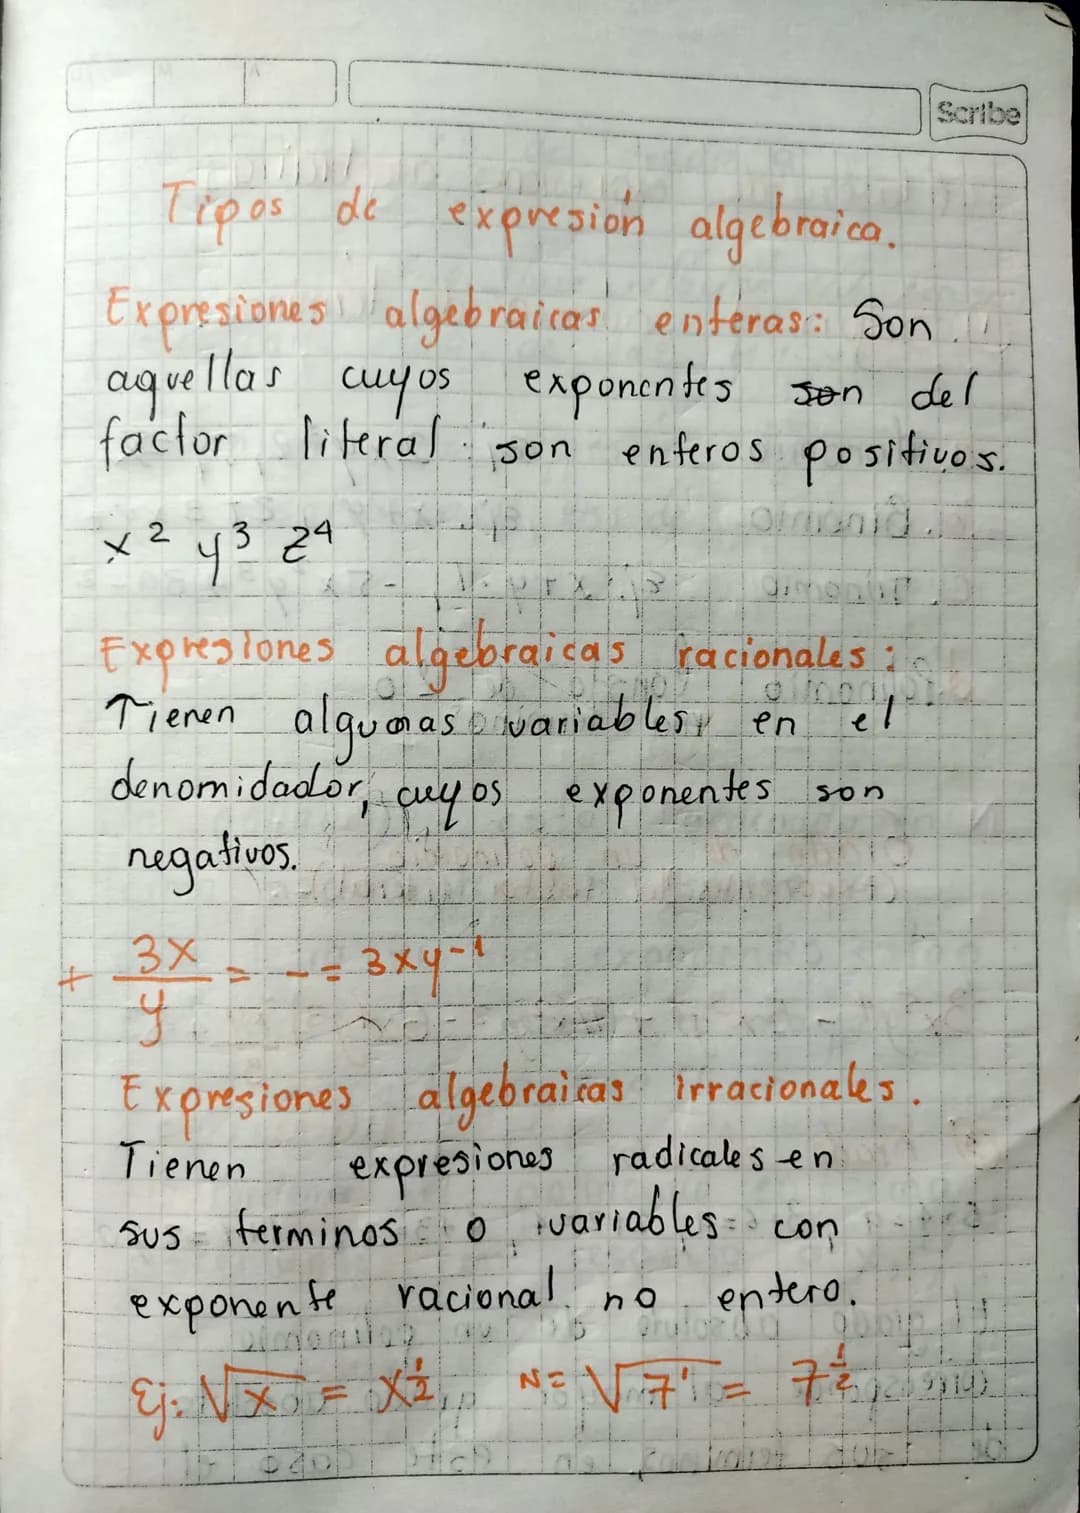 Scribe
Tipos de expresión algebraica.
Expresiones algebraicas enteras: Son
aquellas cuyos exponentes son del
factor literal son enteros positivos.
x² y³ z⁴
Expresiones algebraicas racionales:
Tienen algunas variables en el
denomidador, cuyos exponentes son
negativos.
+ 3x/y = - = 3xy⁻¹
Expresiones algebraicas irracionales.
Tienen expresiones radicales en
sus terminos o variables con
exponente racional no entero.
Ej: √x = x^½ N= √7 = 7^½